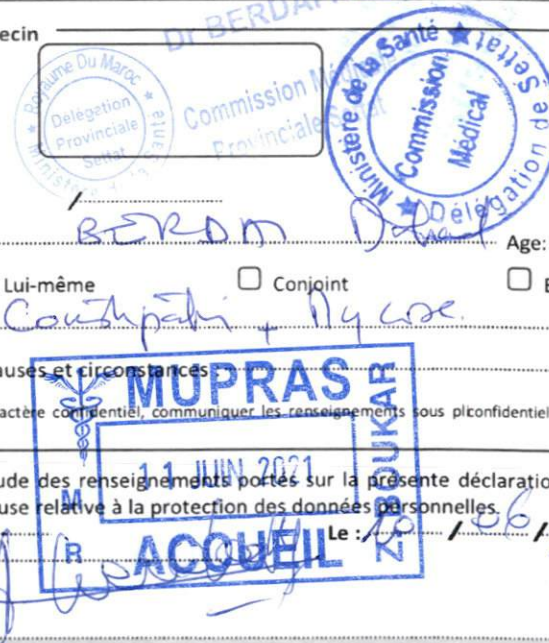 ecin
Dr BERDA
Royaume Du Maroc
Délégation
Provinciale
Settat
Commission
Provinciale
Ministère de la Santé
Délégation de Settat
Commission
Médical
/
BERDA
Age:
Lui-même
Conjoint
+ Mycose
auses et circonstances
actère confidentiel, communiquer les renseignements sous pliconfidentiel
MUPRAS
11 JUIN 2021
M
R
ACCUEIL
Z.BOUKAR
ude des renseignements portés sur la présente déclaratio
use relative à la protection des données personnelles.
Le : 10 / 06 /